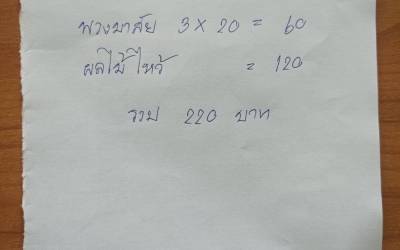 พวงมาลัย 3 × 20 = 60
ผลไม้ไหว้ = 120
รวม 220 บาท